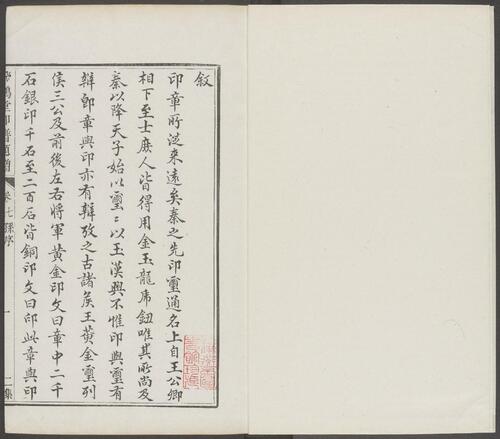 叙
印章所從来遠矣秦之先印璽通名上自王公卿
相下至士庶人皆得用金玉龍虎鈕唯其所尚及
秦以降天子始以璽〻以玉漢興不惟印與璽有
辨即章與印亦有辨攷之古諸矦王黄金璽列
侯三公及前後左右將軍黄金印文曰章中二千
石銀印千石至二百石皆銅印文曰印此章與印
鴻堂印譜
卷七孫序
一
二集